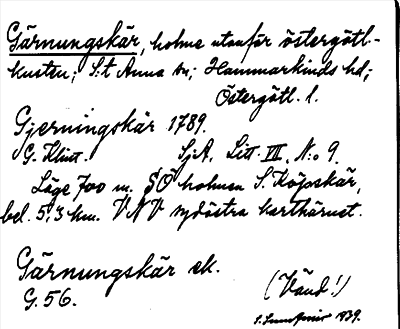 Gärnungskär, holme utanför östergötl.-
kusten; S:t Anna sn; Hammarkinds hd;
Östergötl. l.
Gjerningskär 1789.
G. Klint. SjA, Litt VII, N:o 9.
Läge 700 m. SO holmen S. Köpskär,
bel. 5,3 km. VNV sydöstra karthörnet.
Gärnungskär ek.
G. 56. (Vänd!)
1939.